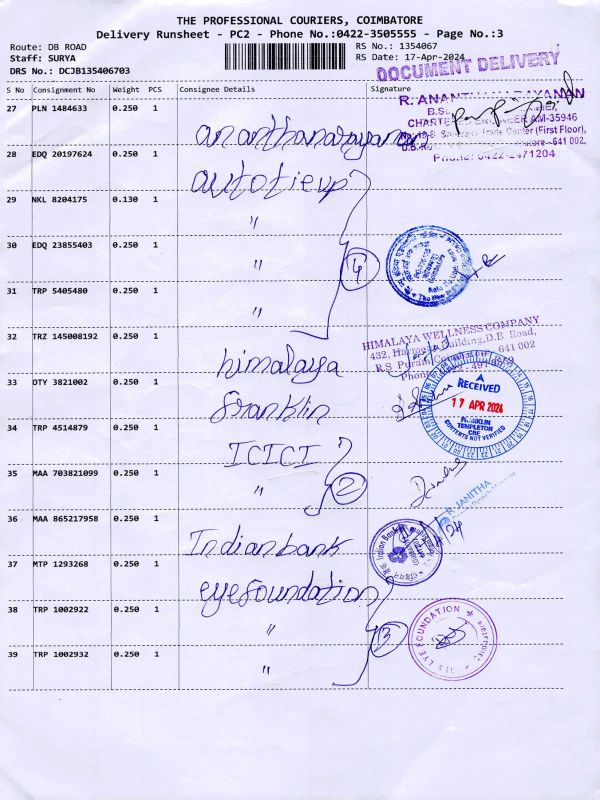 THE PROFESSIONAL COURIERS, COIMBATORE
Delivery Runsheet - PC2 - Phone No.:0422-3505555 - Page No.:3
Route: DB ROAD
Staff: SURYA
DRS No.: DCJB135406703
RS No.: 1354067
RS Date: 17-Apr-2024
DOCUMENT DELIVERY
S No Consignment No Weight PCS Consignee Details Signature
27 PLN 1484633 0.250 1 ananthanarayanan
R. ANANTHANARAYANAN
CHARTERED ENGINEER AM-35946
Trade Center (First Floor),
641 002.
Phone: 0422-2471204
28 EDQ 20197624 0.250 1 autotieup
29 NKL 8204175 0.130 1 "
30 EDQ 23855403 0.250 1 "
4
31 TRP 5405480 0.250 1 "
32 TRZ 145008192 0.250 1 himalaya
HIMALAYA WELLNESS COMPANY
432, Building, D.B. Road,
R.S. Puram, Coimbatore 641 002
33 OTY 3821002 0.250 1 franklin
RECEIVED
17 APR 2024
FRANKLIN
TEMPLETON
CBE
CONTENTS NOT VERIFIED
34 TRP 4514879 0.250 1 ICICI
35 MAA 703821099 0.250 1 "
2
R JANITHA
36 MAA 865217958 0.250 1 Indian bank
Indian Bank
37 MTP 1293268 0.250 1 eyefoundation
38 TRP 1002922 0.250 1 "
3
THE EYE FOUNDATION
39 TRP 1002932 0.250 1 "